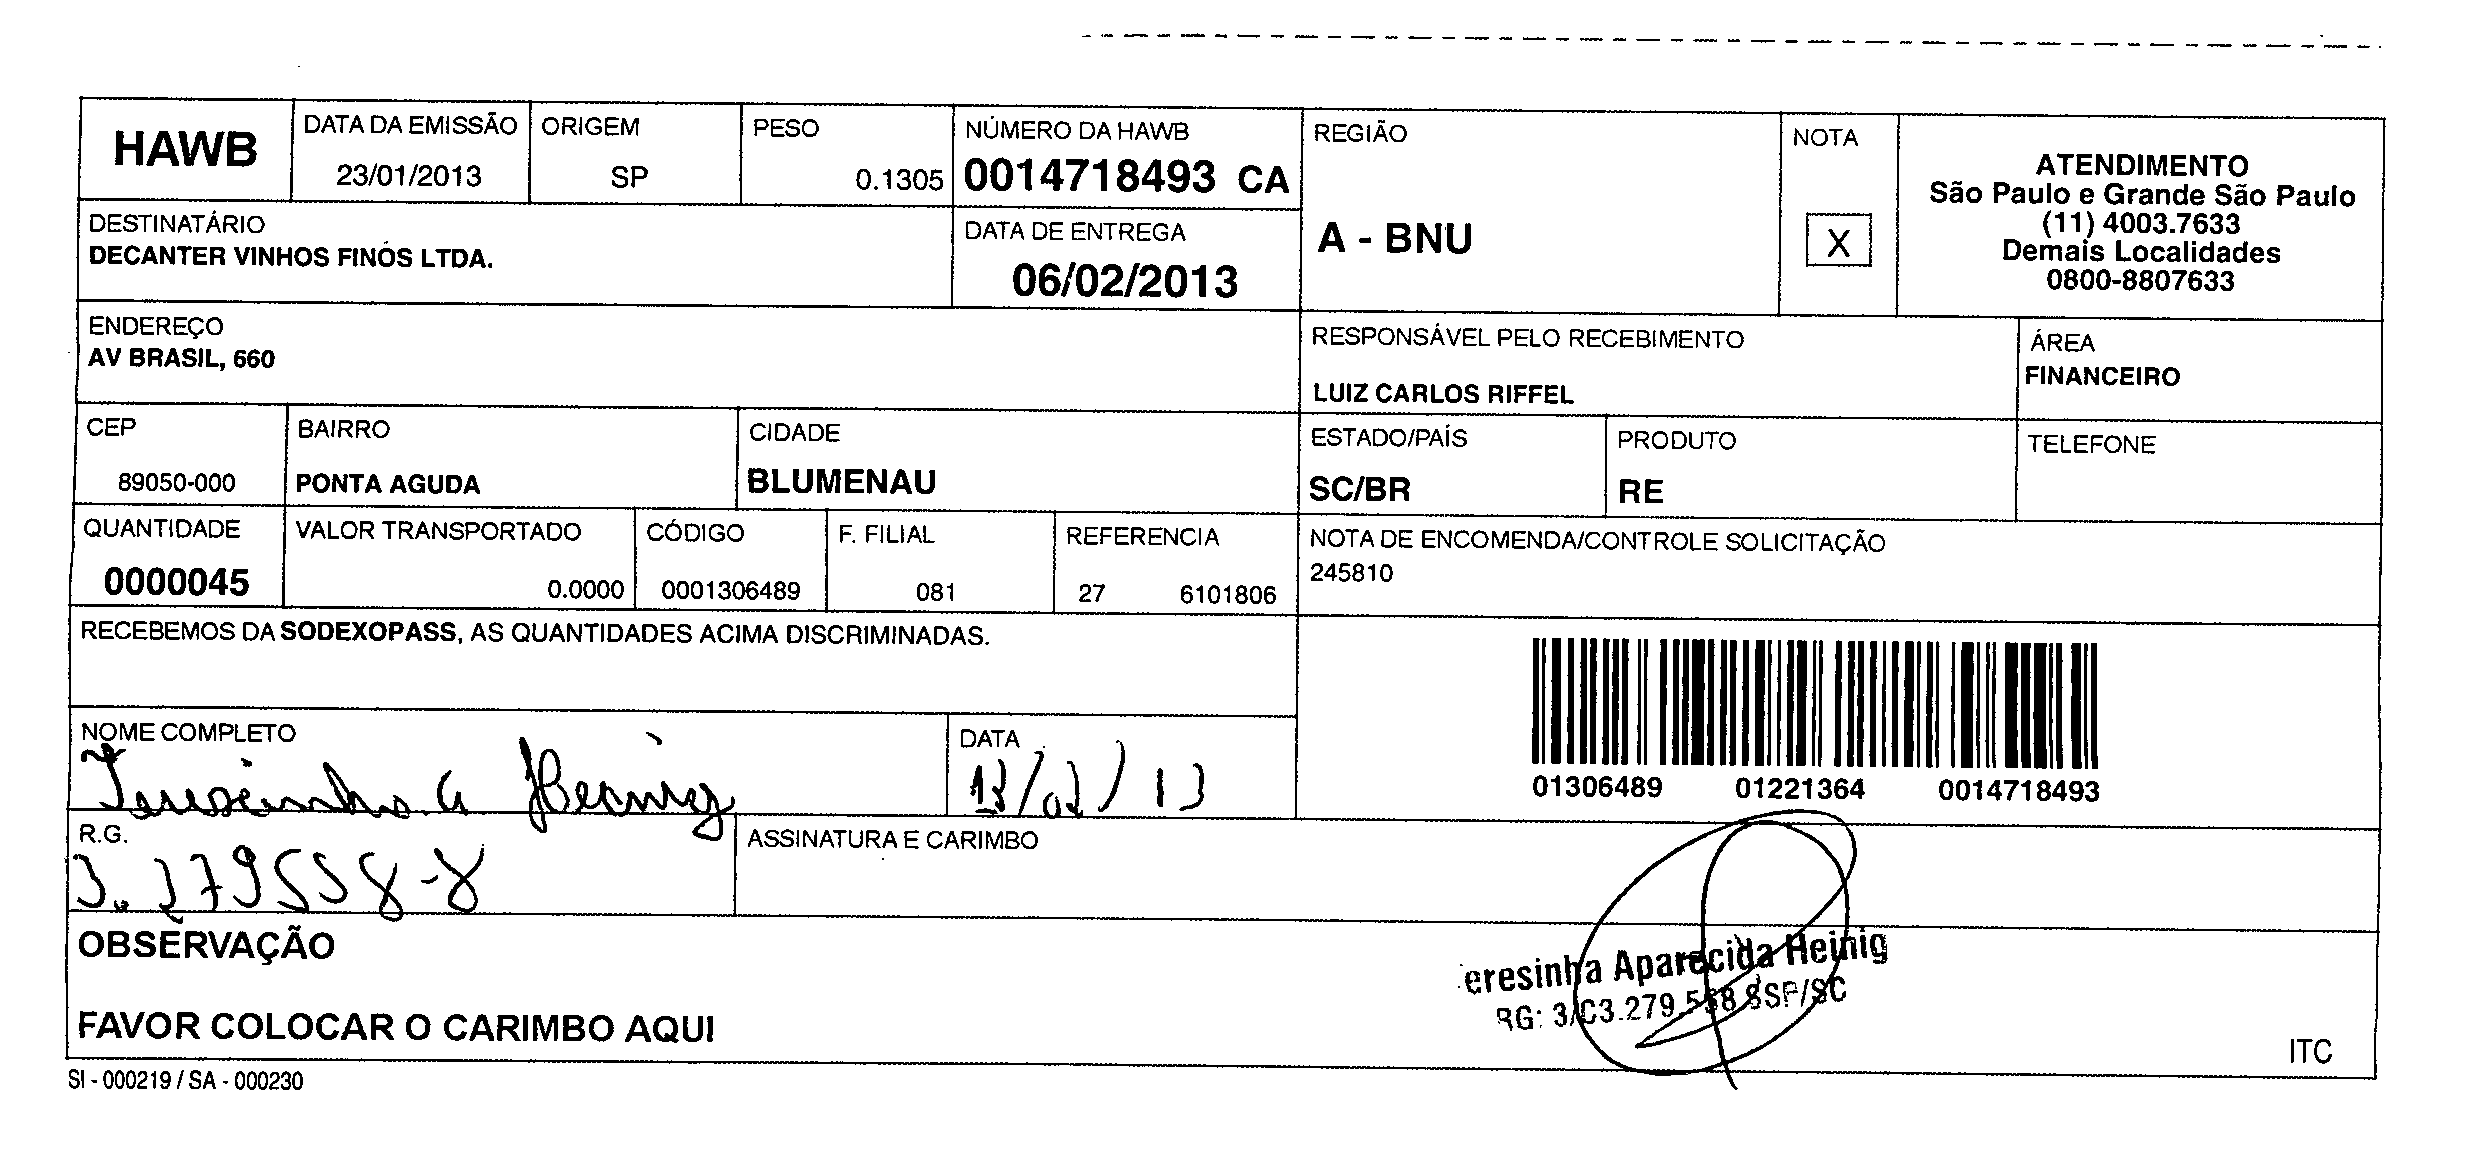 HAWB
DATA DA EMISSÃO
23/01/2013
ORIGEM
SP
PESO
0.1305
NÚMERO DA HAWB
0014718493 CA
REGIÃO
A - BNU
NOTA
X
ATENDIMENTO
São Paulo e Grande São Paulo
(11) 4003.7633
Demais Localidades
0800-8807633
DESTINATÁRIO
DECANTER VINHOS FINOS LTDA.
DATA DE ENTREGA
06/02/2013
ENDEREÇO
AV BRASIL, 660
RESPONSÁVEL PELO RECEBIMENTO
LUIZ CARLOS RIFFEL
ÁREA
FINANCEIRO
CEP
89050-000
BAIRRO
PONTA AGUDA
CIDADE
BLUMENAU
ESTADO/PAÍS
SC/BR
PRODUTO
RE
TELEFONE
QUANTIDADE
0000045
VALOR TRANSPORTADO
0.0000
CÓDIGO
0001306489
F. FILIAL
081
REFERENCIA
27 6101806
NOTA DE ENCOMENDA/CONTROLE SOLICITAÇÃO
245810
RECEBEMOS DA SODEXOPASS, AS QUANTIDADES ACIMA DISCRIMINADAS.
01306489 01221364 0014718493
NOME COMPLETO
Teresinha A Heinig
DATA
13/02/13
R.G.
3.279558-8
ASSINATURA E CARIMBO
OBSERVAÇÃO
eresinha Aparecida Heinig
RG: 3/C3.279.558 SSP/SC
FAVOR COLOCAR O CARIMBO AQUI
ITC
SI - 000219 / SA - 000230